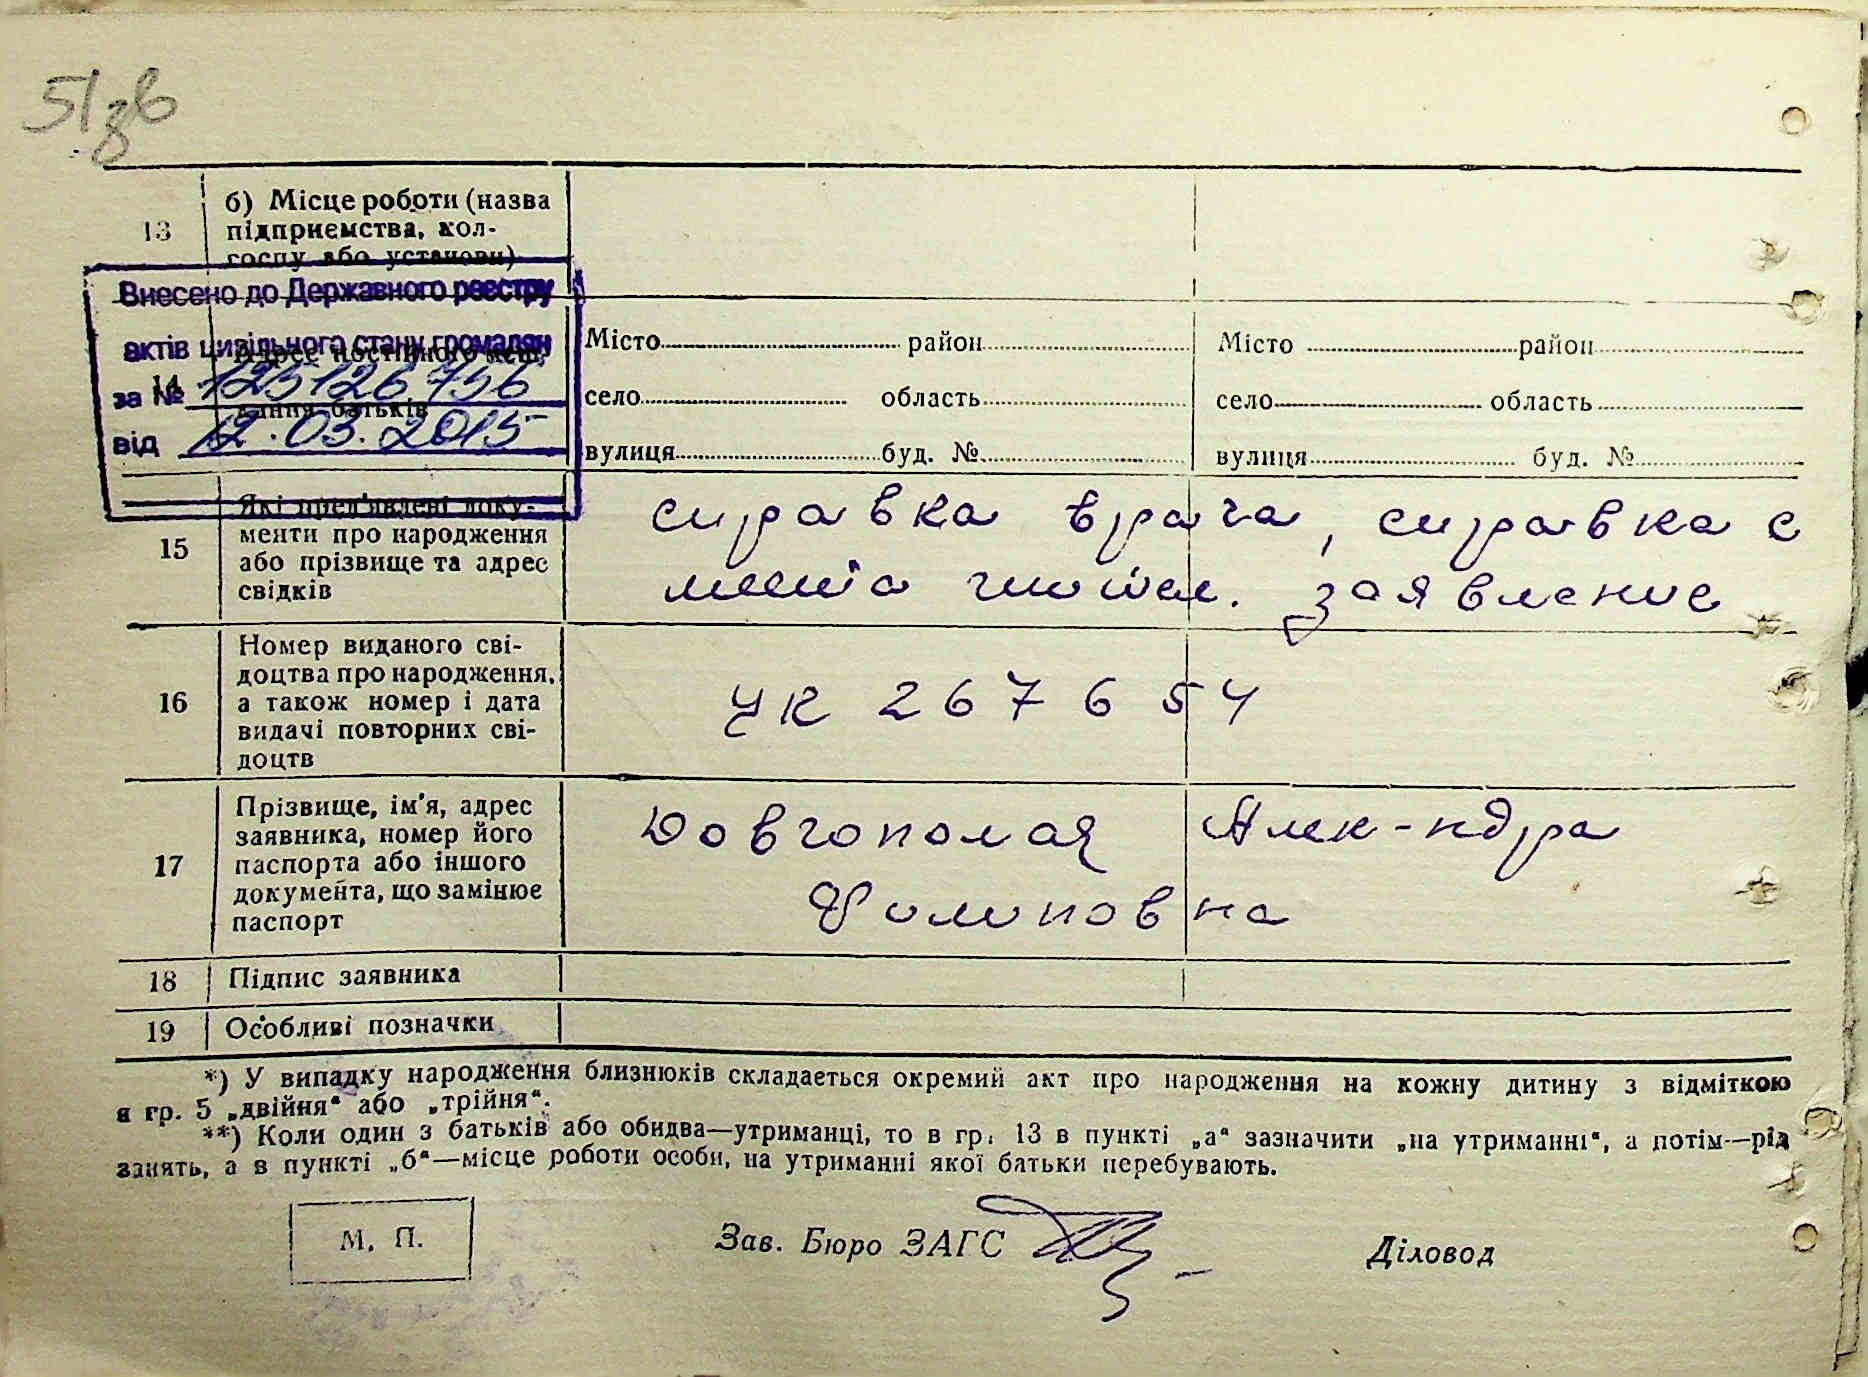 51зв
13
б) Місце роботи (назва
підприємства, кол-
госпу або установи)
Внесено до Державного реєстру
актів цивільного стану громадян
за № 125126756
від 12.03.2015
14
Адрес постійного меш-
кання батьків
Місто район
село область
вулиця буд. №
Місто район
село область
вулиця буд. №
15
Які пред'явлені доку-
менти про народження
або прізвище та адрес
свідків
справка врача, справка с
места жител. заявление
16
Номер виданого сві-
доцтва про народження,
а також номер і дата
видачі повторних сві-
доцтв
УК 267654
17
Прізвище, ім'я, адрес
заявника, номер його
паспорта або іншого
документа, що замінює
паспорт
Довгополая Алек-ндра
Филиповна
18 Підпис заявника
19 Особливі позначки
*) У випадку народження близнюків складається окремий акт про народження на кожну дитину з відміткою
в гр. 5 „двійня“ або „трійня“.
**) Коли один з батьків або обидва—утриманці, то в гр. 13 в пункті „а“ зазначити „на утриманні“, а потім—рід
занять, а в пункті „б“—місце роботи особи, на утриманні якої батьки перебувають.
М. П.
Зав. Бюро ЗАГС
Діловод